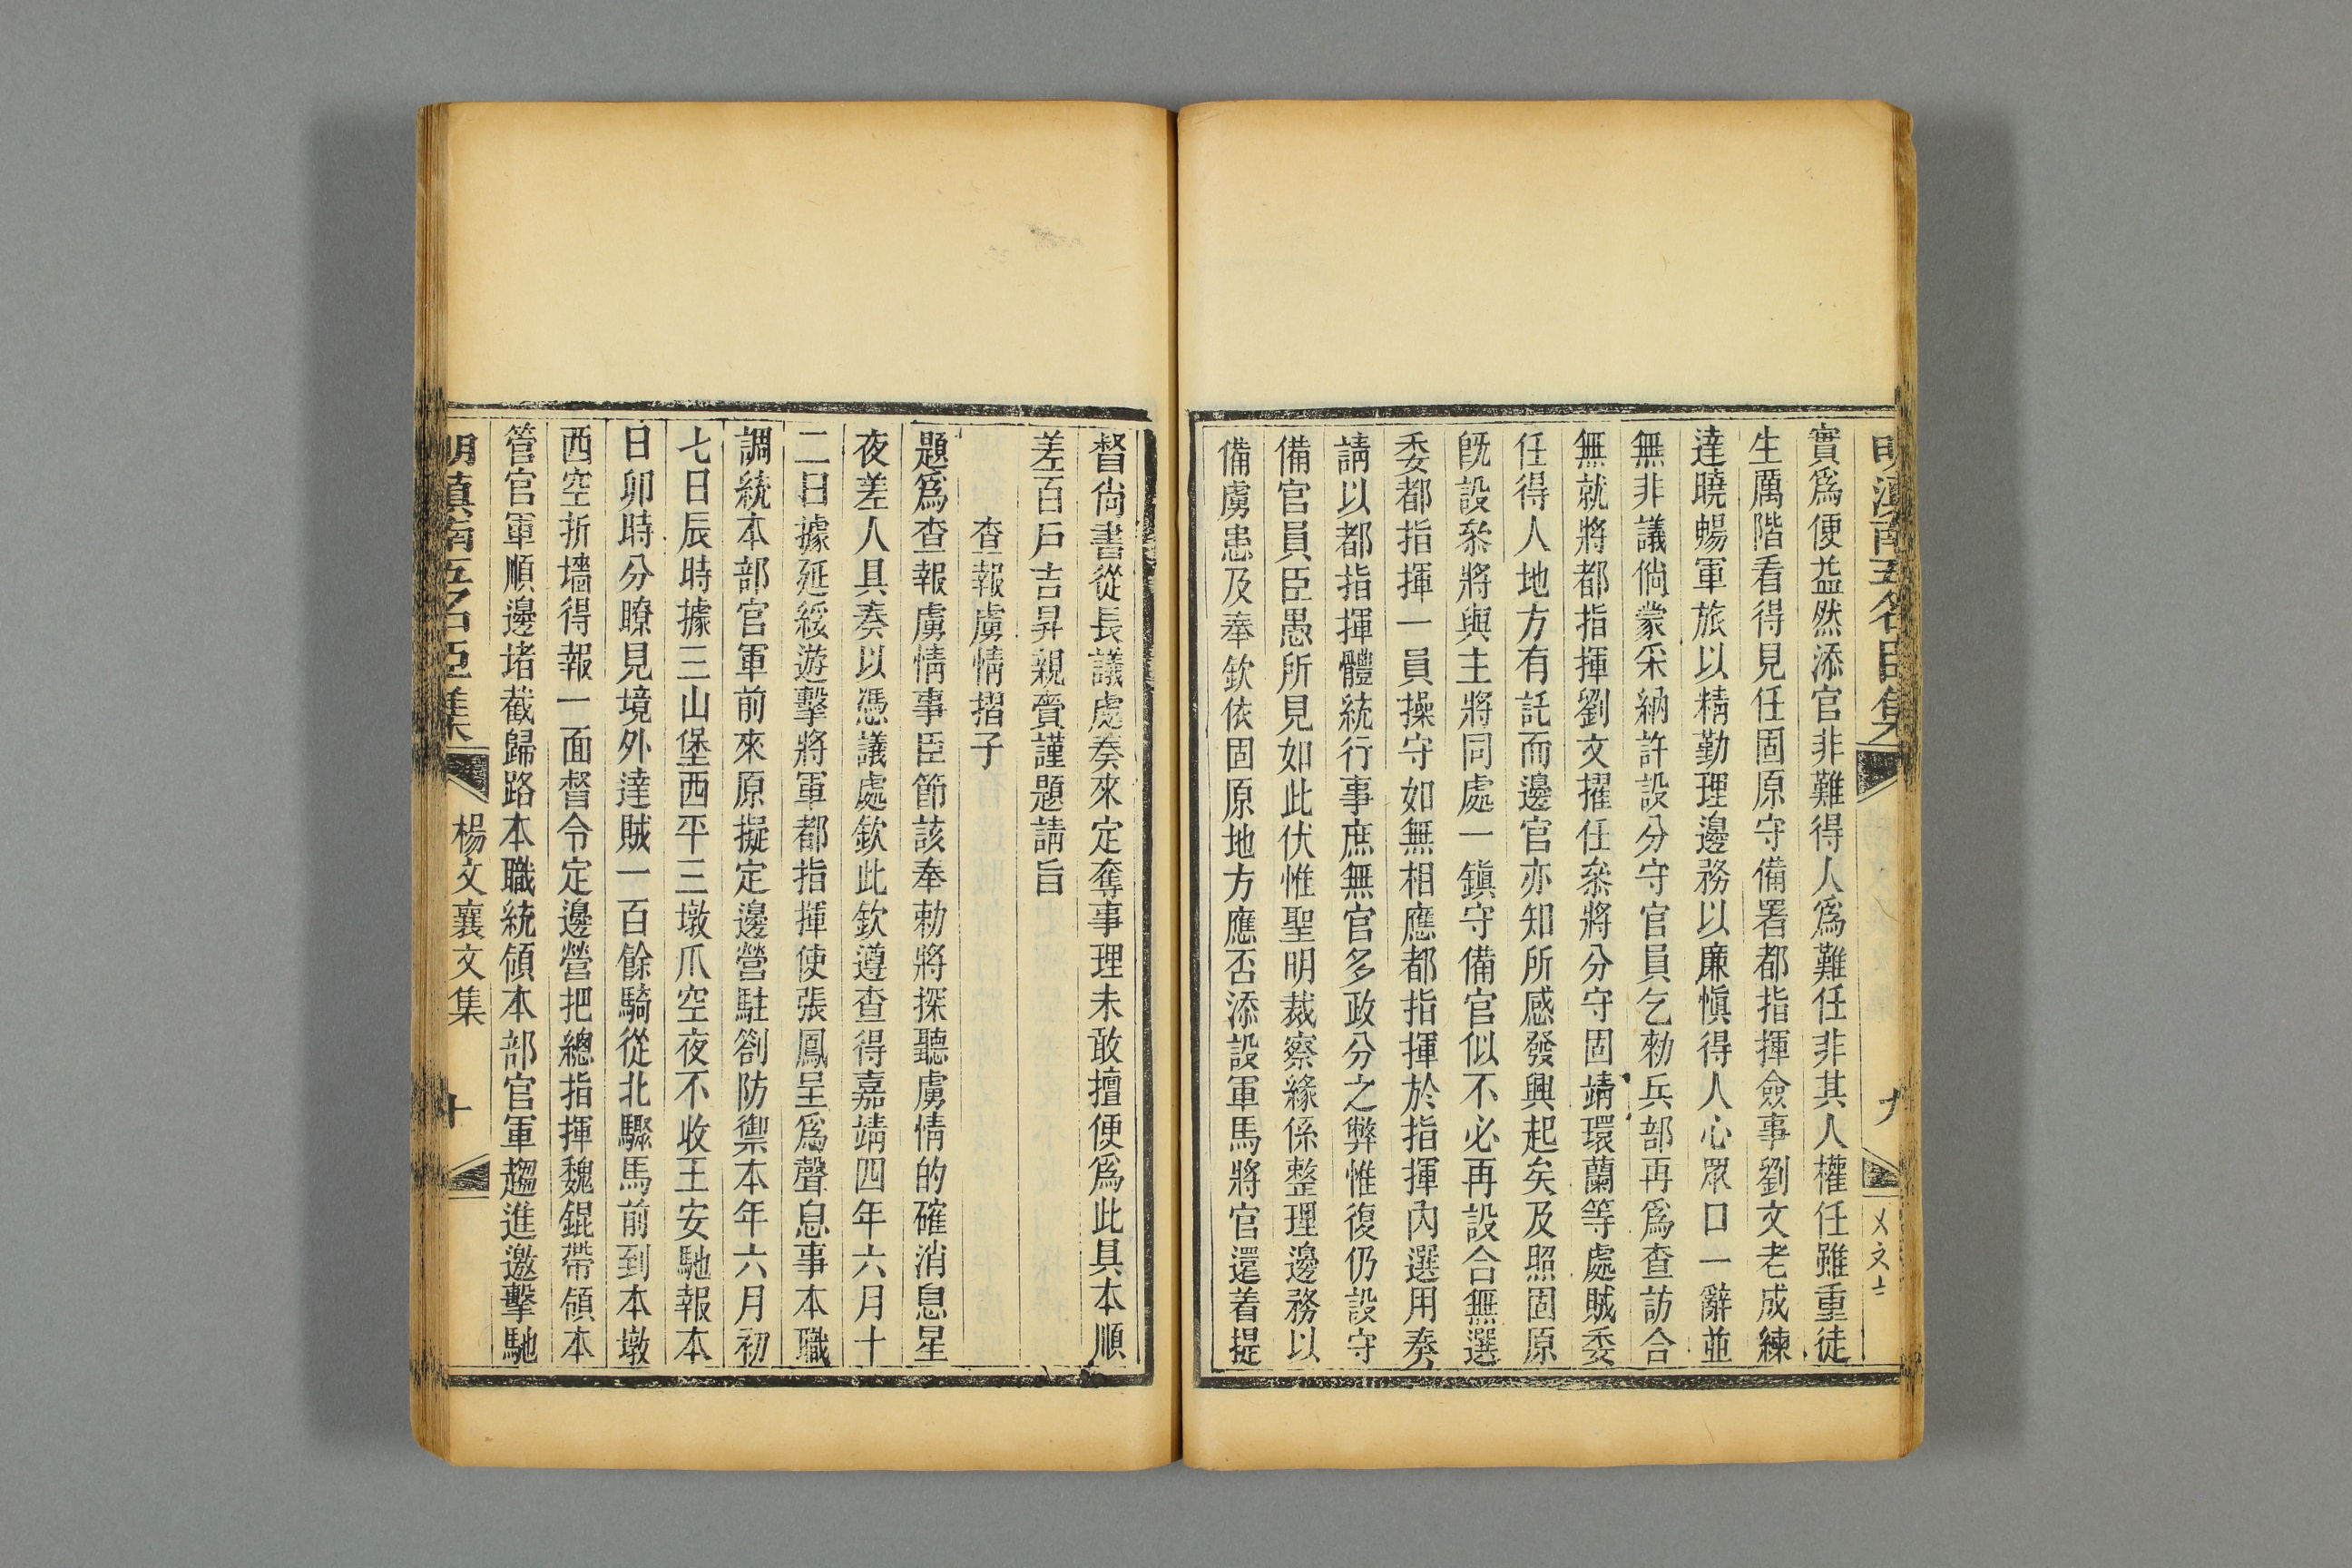 明滇南五名臣集
九
乂文士
實爲便益然添官非難得人爲難任非其人權任雖重徒
生厲階看得見任固原守備署都指揮僉事劉文老成練
達曉暢軍旅以精勤理邊務以廉愼得人心眾口一辭並
無非議倘蒙采納許設分守官員乞勅兵部再爲查訪合
無就將都指揮劉文擢任叅將分守固靖環蘭等處賊委
任得人地方有託而邊官亦知所感發興起矣及照固原
旣設叅將與主將同處一鎮守備官似不必再設合無選
委都指揮一員操守如無相應都指揮於指揮內選用奏
請以都指揮體統行事庶無官多政分之弊惟復仍設守
備官員臣愚所見如此伏惟聖明裁察緣係整理邊務以
備虜患及奉欽依固原地方應否添設軍馬將官還着提
督尙書從長議處奏來定奪事理未敢擅便爲此具本順
差百戶吉昇親賫謹題請旨
查報虜情摺子
題爲查報虜情事臣節該奉勅將探聽虜情的確消息星
夜差人具奏以憑議處欽此欽遵查得嘉靖四年六月十
二日據延綏遊擊將軍都指揮使張鳳呈爲聲息事本職
調統本部官軍前來原擬定邊營駐劄防禦本年六月初
七日辰時據三山堡西平三墩爪空夜不收王安馳報本
日卯時分瞭見境外達賊一百餘騎從北驟馬前到本墩
西空折墻得報一面督令定邊營把總指揮魏錕帶領本
管官軍順邊堵截歸路本職統領本部官軍趨進邀擊馳
明滇南五名臣集
楊文襄文集
十